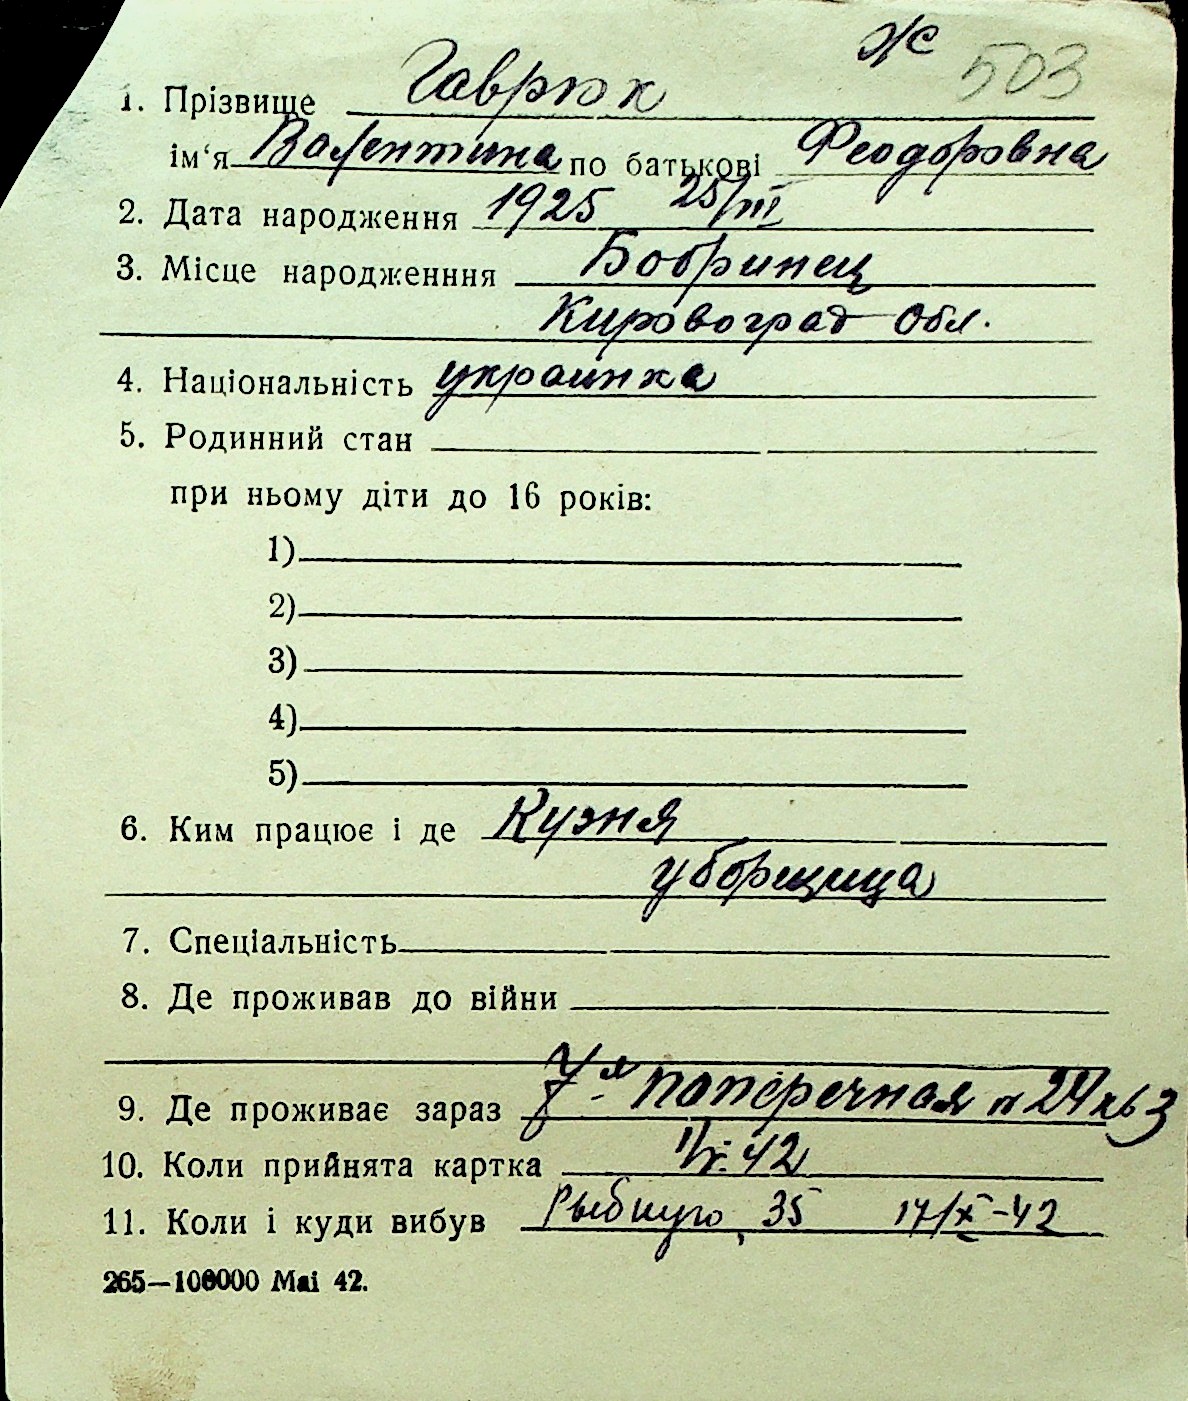 Ж 503
1. Прізвище Гаврюк
ім‘я Валентина по батькові Феодоровна
2. Дата народження 1925 25/III
3. Місце народженння Бобринец
Кировоград обл.
4. Національність украинка
5. Родинний стан
при ньому діти до 16 років:
1)
2)
3)
4)
5)
6. Ким працює і де Кузня
уборщица
7. Спеціальність
8. Де проживав до війни
9. Де проживає зараз 7-я поперечная 24 кв 3
10. Коли прийнята картка 42
11. Коли і куди вибув Рыбную, 35 17/X-42
265—100000 Mai 42.